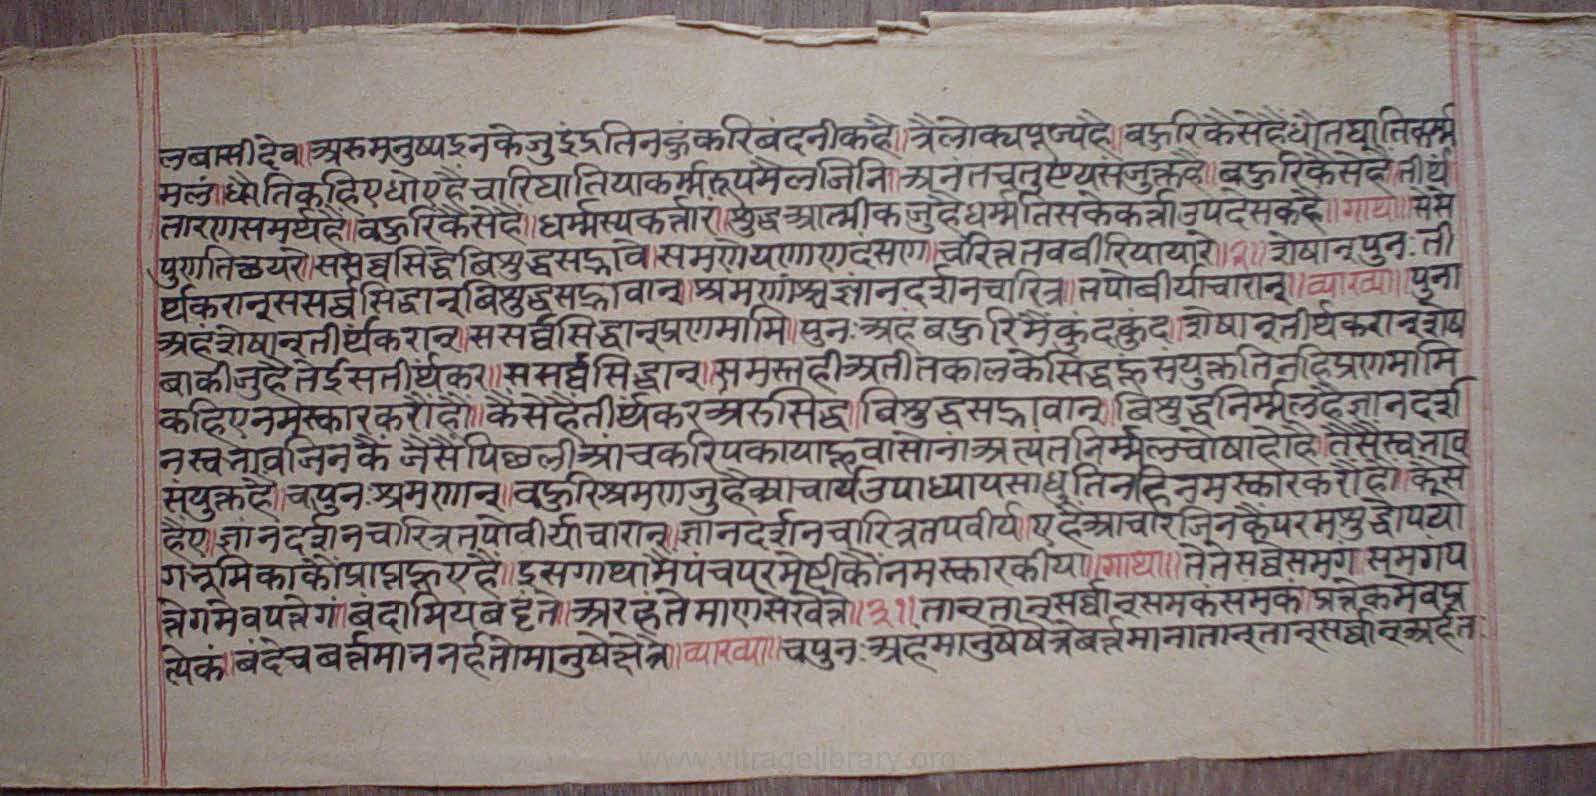 लबासी देव॥ अरु मनुष्य इनके जु इंद्र तिनहुं करि बंदनीक है॥ त्रैलोक्य पूज्य है॥ बहुरि कैसे है धौतघातिकर्म्म
मलं॥ धौति कहिए धोए हैं चारि घातिया कर्म्मरूप मैल जिनि॥ अनंत चतुष्टय संजुक्त है॥ बहुरि कैसे है॥ तीर्थ
तारण समर्थ है॥ बहुरि कैसे है॥ धर्म्मस्य कर्त्तारं॥ शुद्ध आत्मीक जु है धर्म्म तिसके कर्त्ता उपदेसक है॥ गाथा॥ सेसे
पुणतिच्छयरे॥ ससव्वसिद्धे बिशुद्धसह्मावे॥ समणेयणाणदंसण॥ चरित्ततववीरियायारे॥२॥ शेषान् पुनः ती
र्थकरान् ससर्व्वसिद्धान् बिशुद्धसह्मावान्॥ श्रमणांश्च ज्ञांनदर्शनचारित्र॥ तपोबीर्याचारान्॥ व्याख्या॥ पुना
अहं शेषान् तीर्थकरान्॥ ससर्व्वसिद्धान् प्रणमामि॥ पुनः अहं बहुरि मैं कुंदकुंद॥ शेषान् तीर्थकरान् शेष
बाकी जु है तेईस तीर्थकर॥ ससर्व्वसिद्धान्॥ समस्त ही अतीत काल के सिद्धह्न सयुक्त तिनहि प्रणमामि
कहिए नमस्कार करौं हौं॥ कैसे है तीर्थकर अरु सिद्ध॥ विशुद्धसह्मावान्॥ बिशुद्ध निर्म्मल है ज्ञानदर्श
न स्वभाव जिनकै जैसैं पिछली आंच करि पकाया हूवा सोनां अत्यंत निर्म्मल चोषा होहै॥ तैसै स्वभाव
संयुक्त है॥ च पुनः श्रमणान्॥ बहुरि श्रमण जु है आचार्य उपाध्याय साधु तिनहि नमस्कार करौ हौ॥ कैसे
है ए॥ ज्ञांनदर्शनचारित्रतपोवीर्याचारान्॥ ज्ञानदर्शनचारित्रतपवीर्य॥ ए है आचार जिनकै परम शुद्धोपयो
ग भूमिका कौं प्राप्त हूए है॥ इस गाथा मैं पंच परमेष्टी कौं नमस्कार कीया॥ गाथा॥ ते ते सव्वे समग॥ समगं प
त्तेगमेव पत्तेगं॥ बंदामि य बट्टंते॥ अरहंते माणुसे खेत्ते॥३॥ तान् तान् सर्व्वान् समकं समकं॥ प्रत्येकमेव प्र
त्येकं॥ बंदे च बर्त्तमानानर्हतो मानुषे क्षेत्रे॥ व्याख्या॥ च पुनः अहं मानुषे क्षेत्रे बर्त्तमानान् तान् तान् सर्व्वान् अर्हत
www.vitragelibrary.org